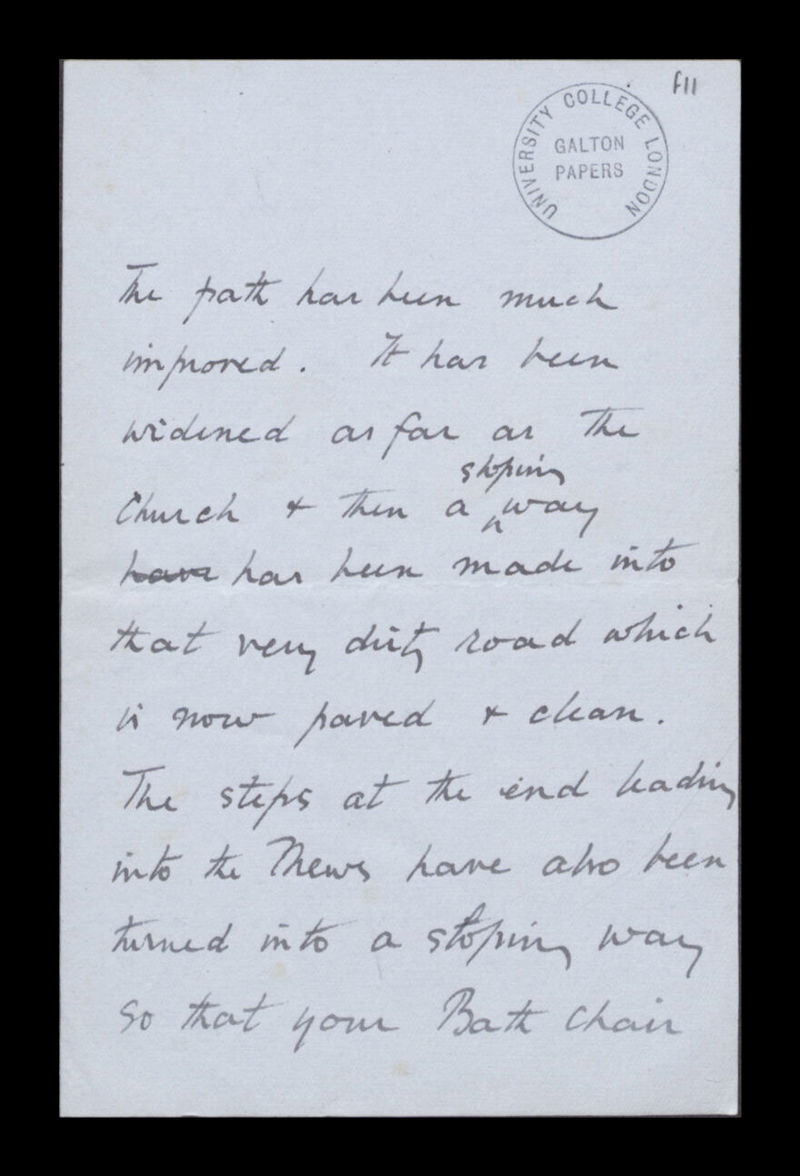 f11
UNIVERSITY COLLEGE LONDON
GALTON
PAPERS
The path has been much
improved. It has been
widened as far as the
sloping
Church & then a ^ way
have has been made into
that very dirty road which
is now paved & clean.
The steps at the end leading
into the Mews have also been
turned into a sloping way
So that your Bath Chair